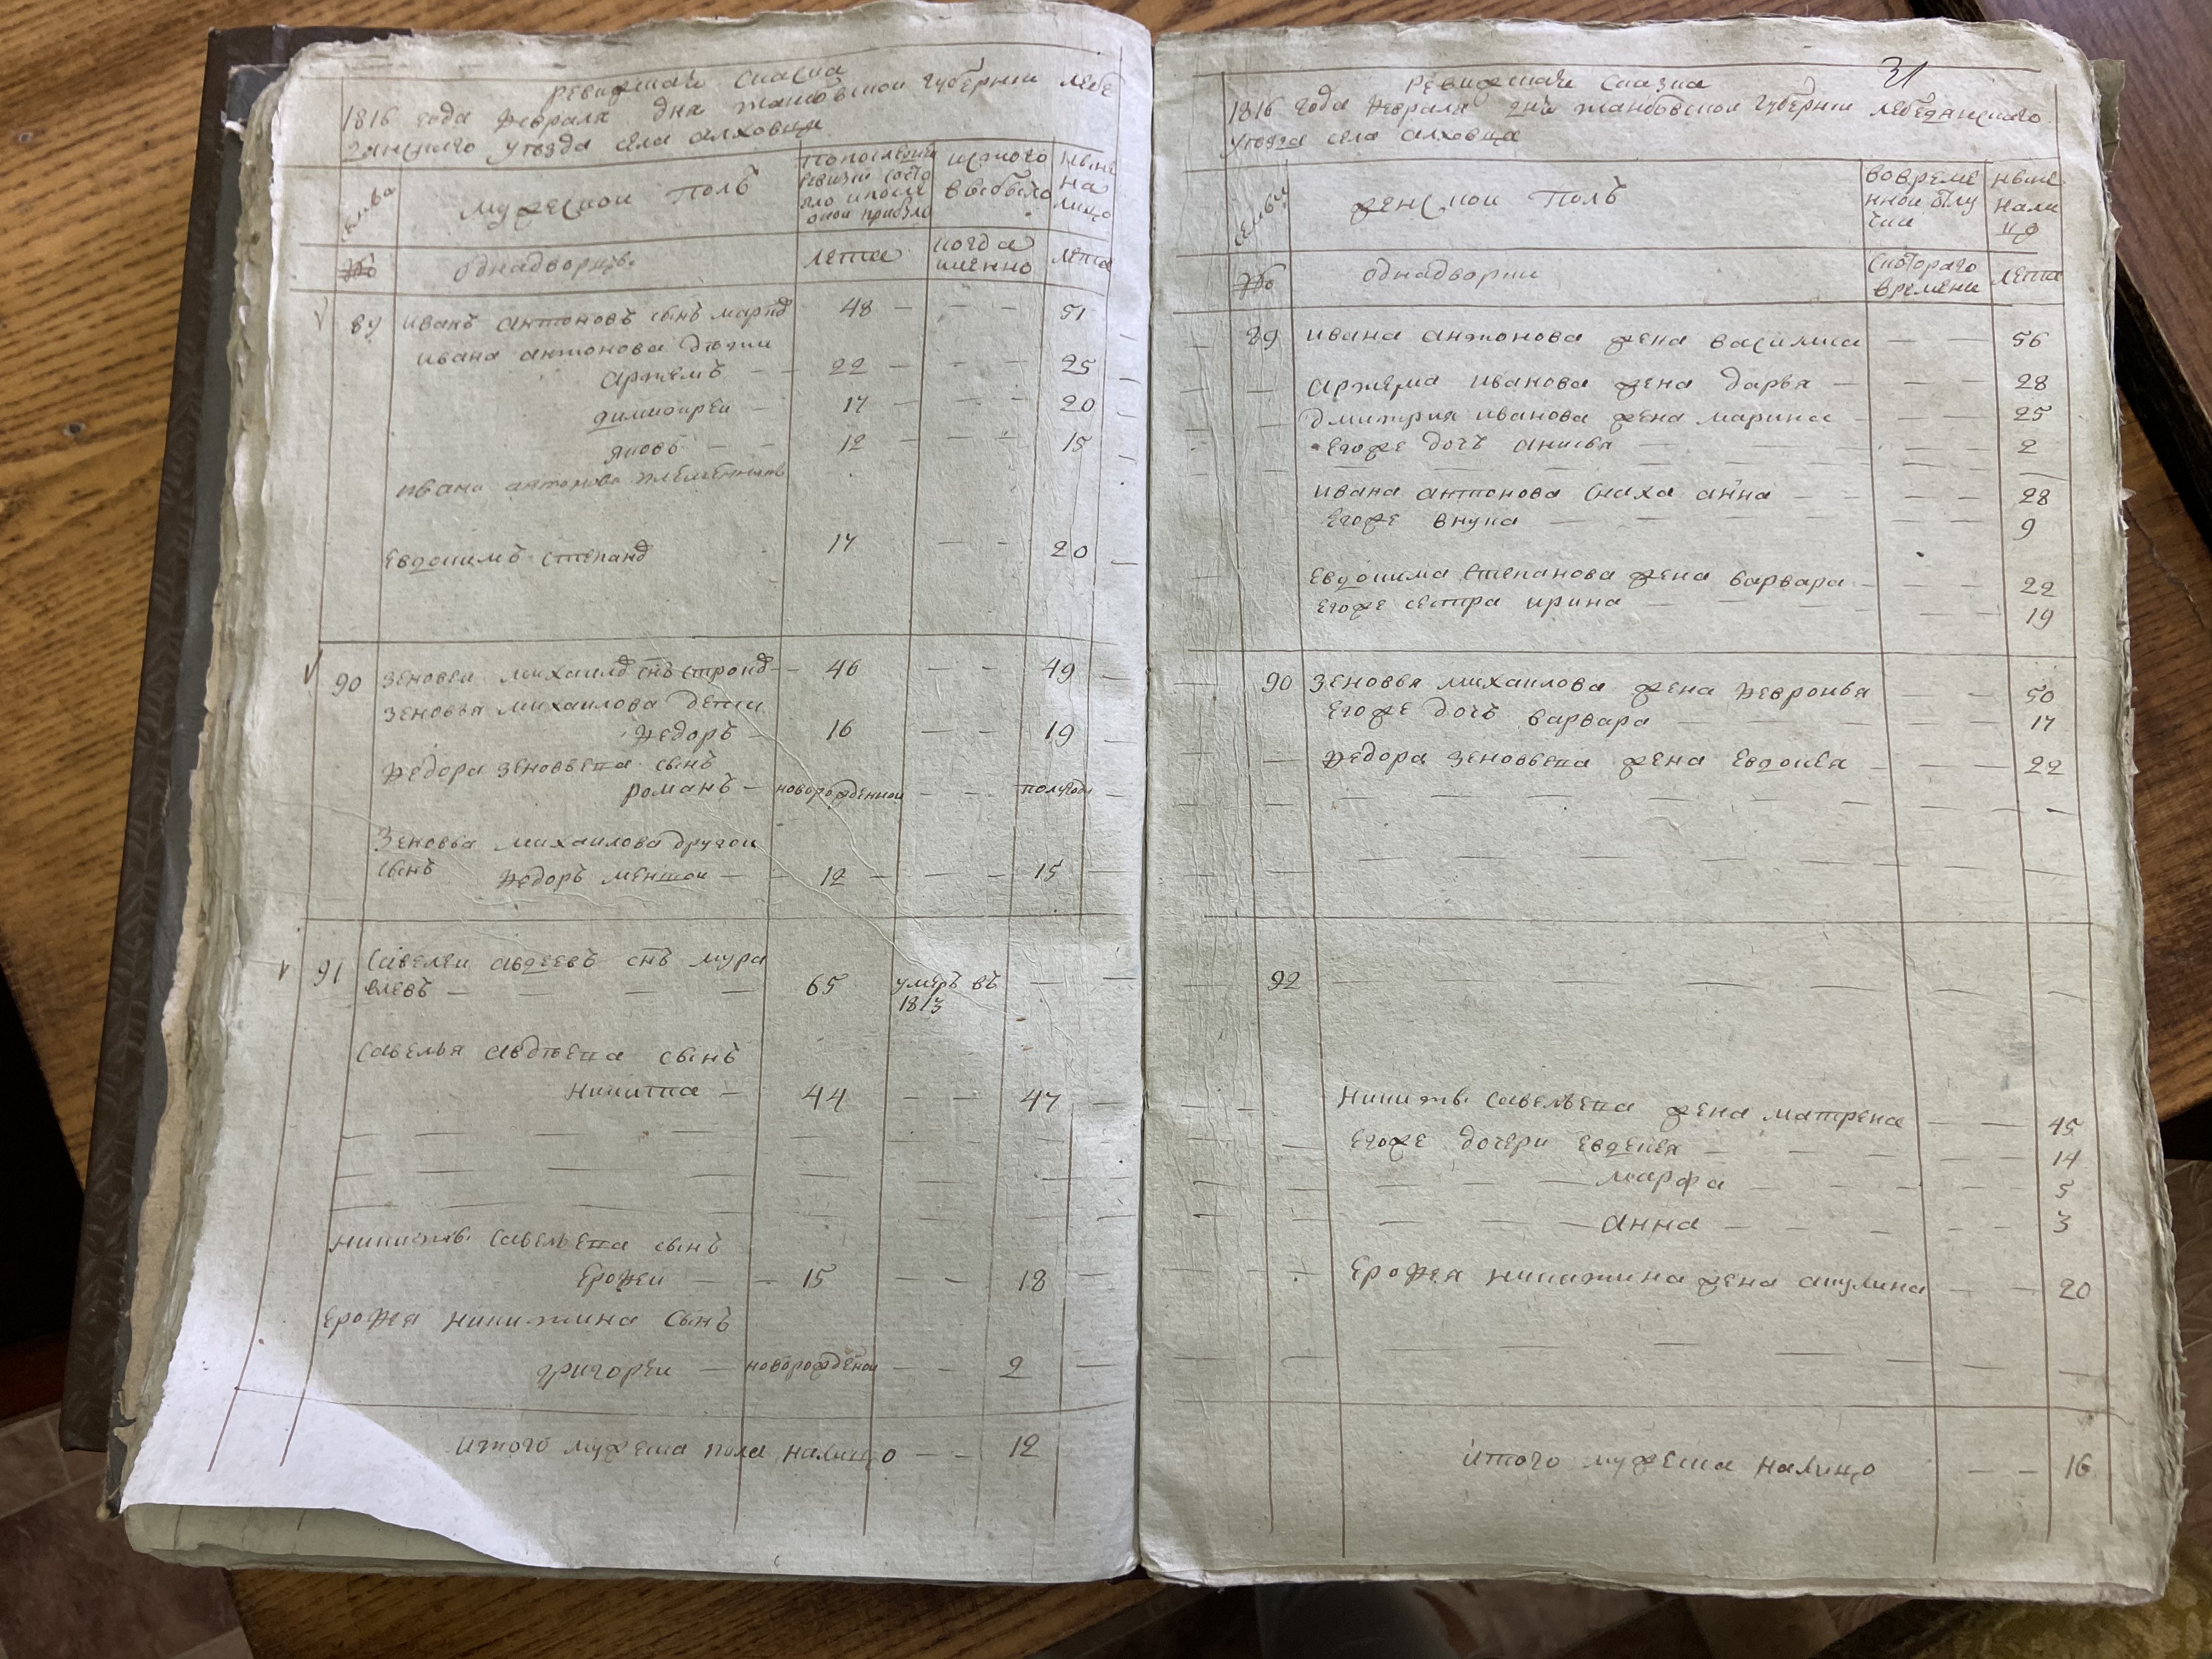 ревижская сказка
1816 года февраля дня танбовской губернии лебе
дянскаго уезда села алховца
семьи
мужескои полъ
попоследнеи ревизии состояло ипосле онои прибыло
исътого выбыло
ныне на лицо
№
однадворцы
лета
когда именно
лета
89 иванъ антоновъ сынъ 48 — — — 51
ивана антонова дети
артемъ — — 22 — — — 25
димитреи — 17 — — — 20
яковъ — — 12 — — — 15
ивана антонова племенникъ
Евдокимъ степанд 17 — — 20
90 зеновеи михаилд снъ 46 — — 49
зеновья михаилова дети
федоръ — 16 — — 19
федора зеновьева сынъ
романъ — новорожденнои — — полугода
зеновья михаилова другои
сынъ федоръ меншои — — 12 — — — 15
91 савелеи авдеевъ снъ мура
влевъ — — — — 65 умеръ въ 1813 —
савелья авдеева сынъ
никита — 44 — — 47
никиты савельева сынъ
Ерофеи — — 15 — — 18
Ерофея никитина сынъ
григореи — новорожденои — — 2
итого мужеска пола налицо — — 12
31
ревижская сказка
1816 года февраля дня танбовскои губернии лебедянскаго
уезда села алховца
семьи
женскои полъ
вовреме ннои отлу чки
ныне нали цо
№
однадворки
скотораго времени
лета
89 ивана антонова жена василиса — — 56
артема иванова жена дарья — — — 28
дмитрия иванова жена марина — — 25
Егоже дочь анисья — — — 2
ивана антонова снаха анна — — — 28
Егоже внука — — — 9
Евдокима степанова жена варвара — — — 22
Егоже сестра ирина — — — 19
90 зеновья михаилова жена февронья — — 50
Егоже дочь варвара — — — 17
федора зеновьева жена Евдокея — — — 22
92
никиты савельева жена матрена — — 45
Егоже дочери евдокея — — — 14
марфа — — — 5
анна — — — 3
Ерофея никитина жена акулина — — 20
итого мужеска налицо — — 16